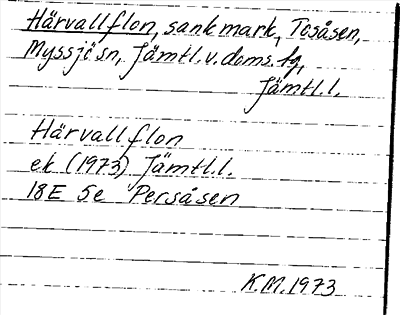 Härvallflon, sank mark, Tosåsen,
Myssjö sn, Jämtl. v. doms. tg,
Jämtl. l.
Härvallflon
ek (1973) Jämtl. l.
18E 5e Persåsen
K.M. 1973